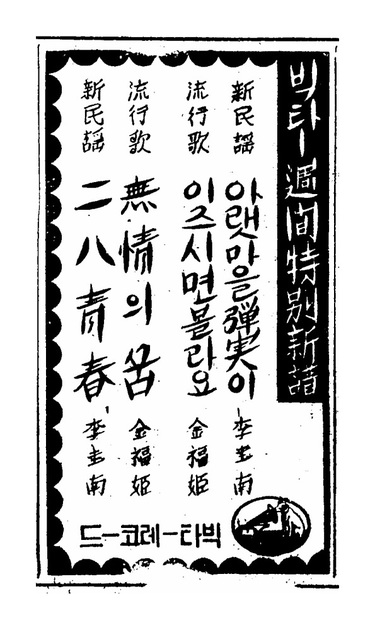 빅타ー週間特別新譜
新民謠 아랫마을彈実이 李圭南
流行歌 이즈시면몰라요 金福姬
流行歌 無情의꿈 金福姬
新民謠 二八青春 李圭南
빅타ー레코ー드